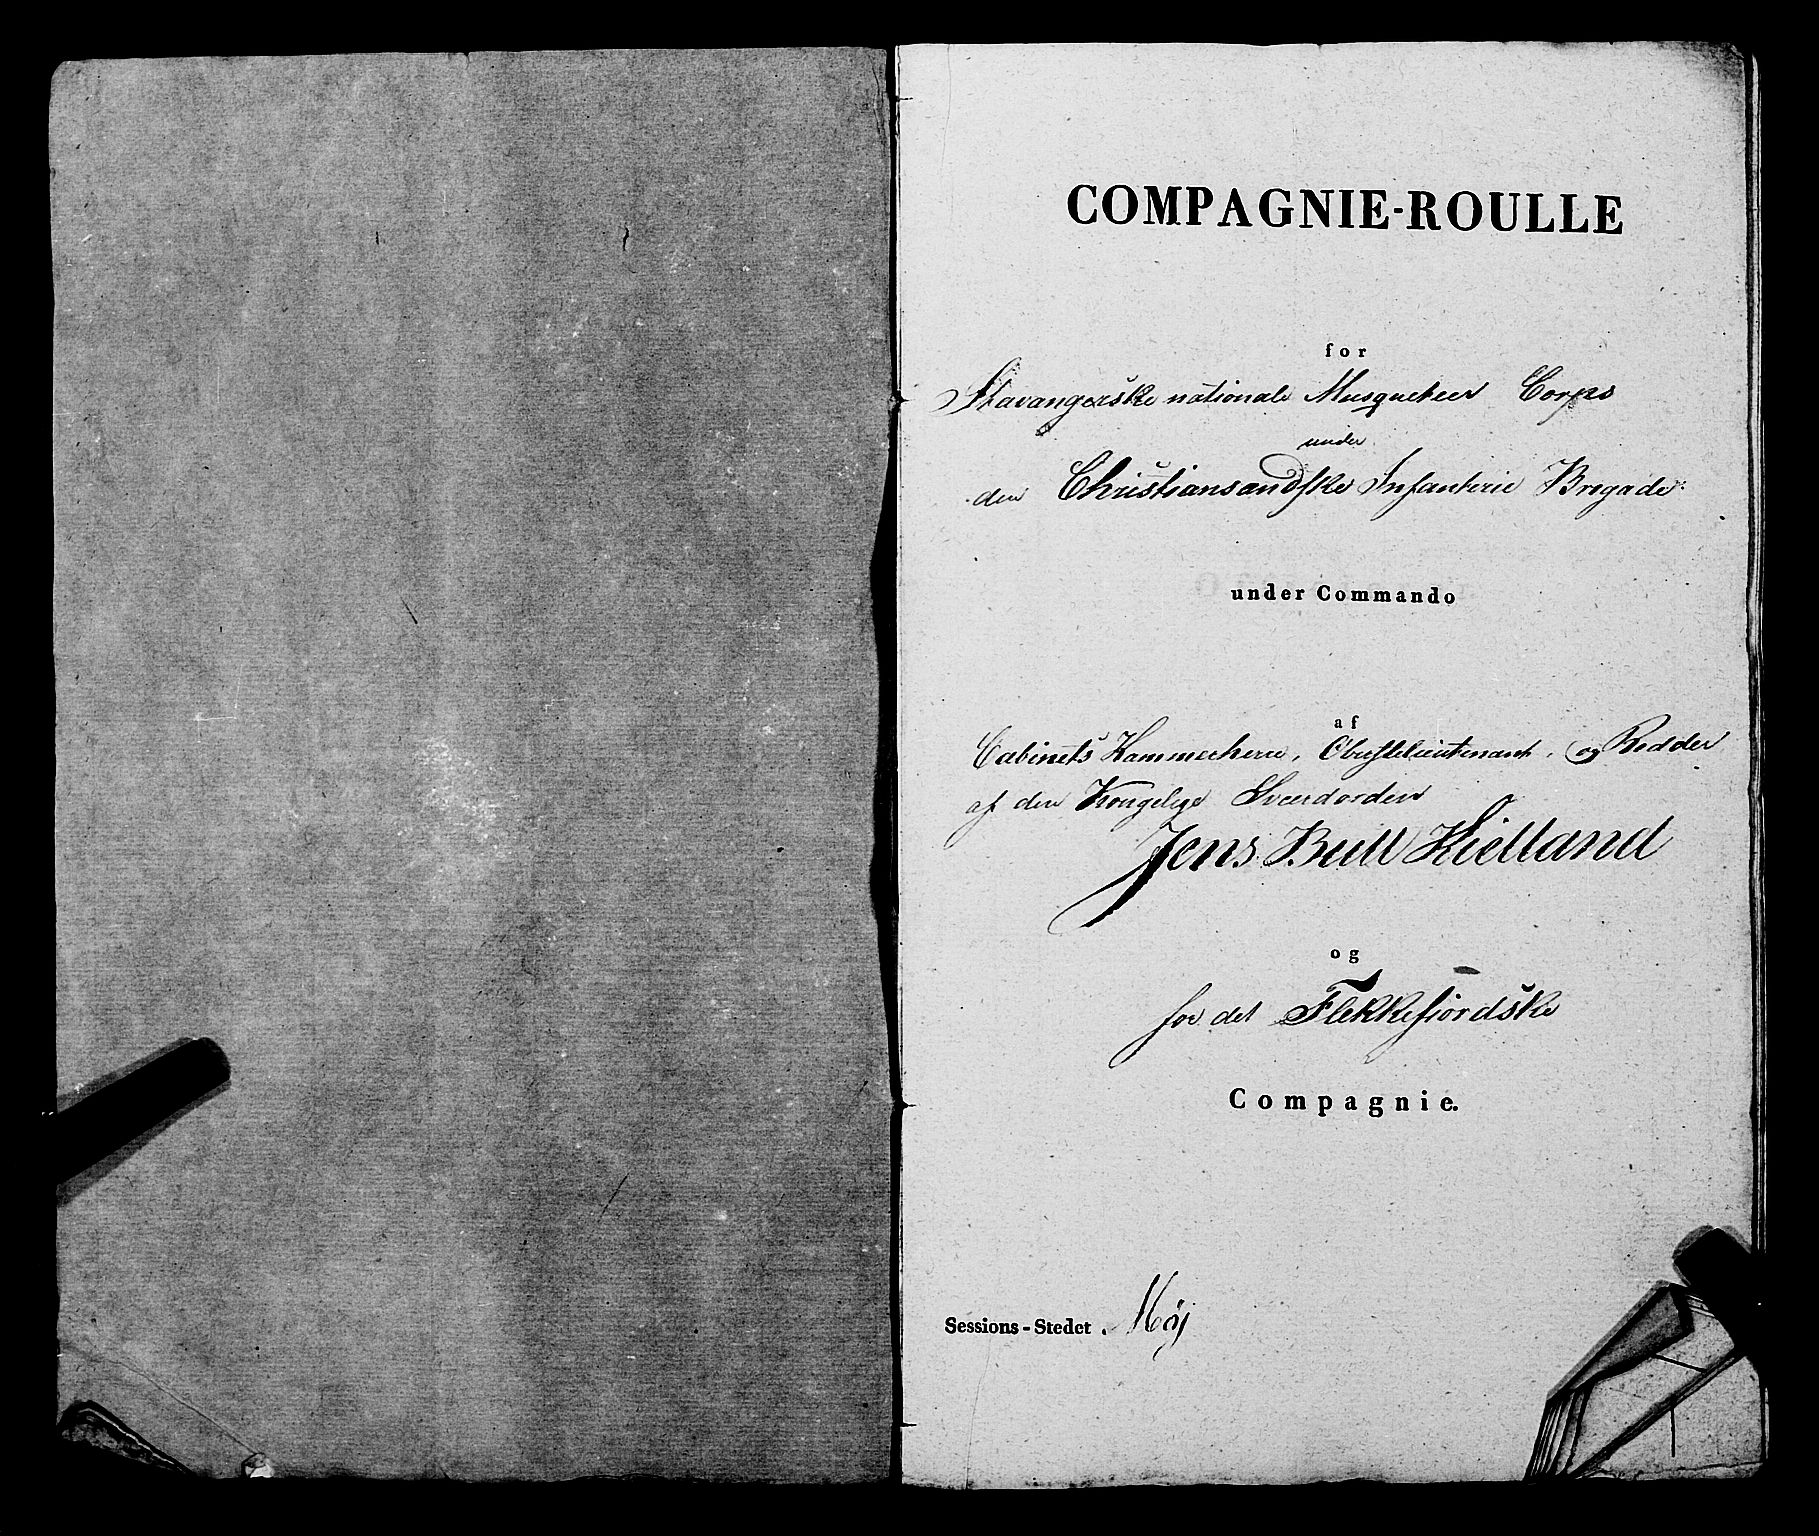 COMPAGNIE-ROULLE
for
Stavangerske nationale Musqueteer Corps
under
den Christiansandske Infanterie Brigade
under Commando
af
Cabinets Kammerherre, Oberstelieutenant, og Redder
af den Kongelige Sværdorden
Jens Bull Kielland
og
for det Flekkefiordske
Compagnie.
Sessions-Stedet. Møj